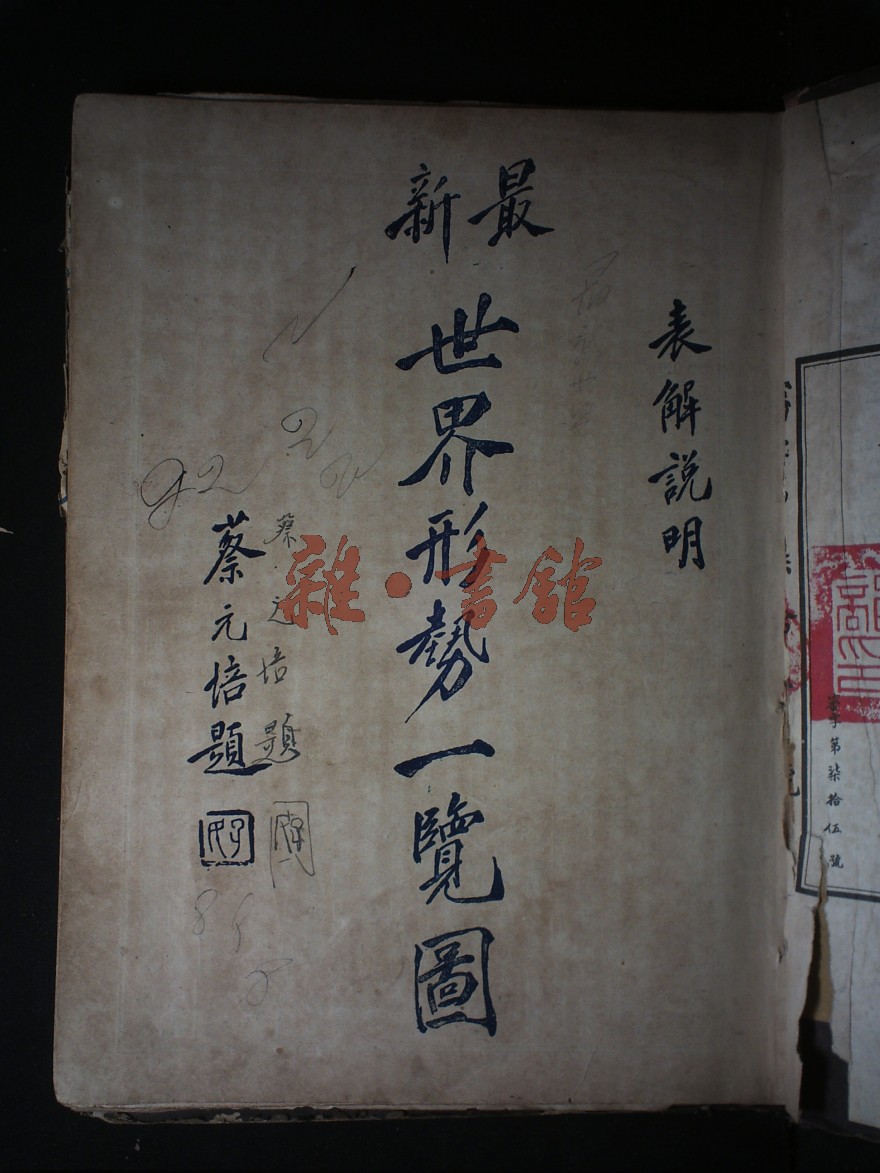 最新
表解説明
世界形勢一覽圖
蔡元培題
蔡元培題
雜·書館
字第柒拾伍號
92